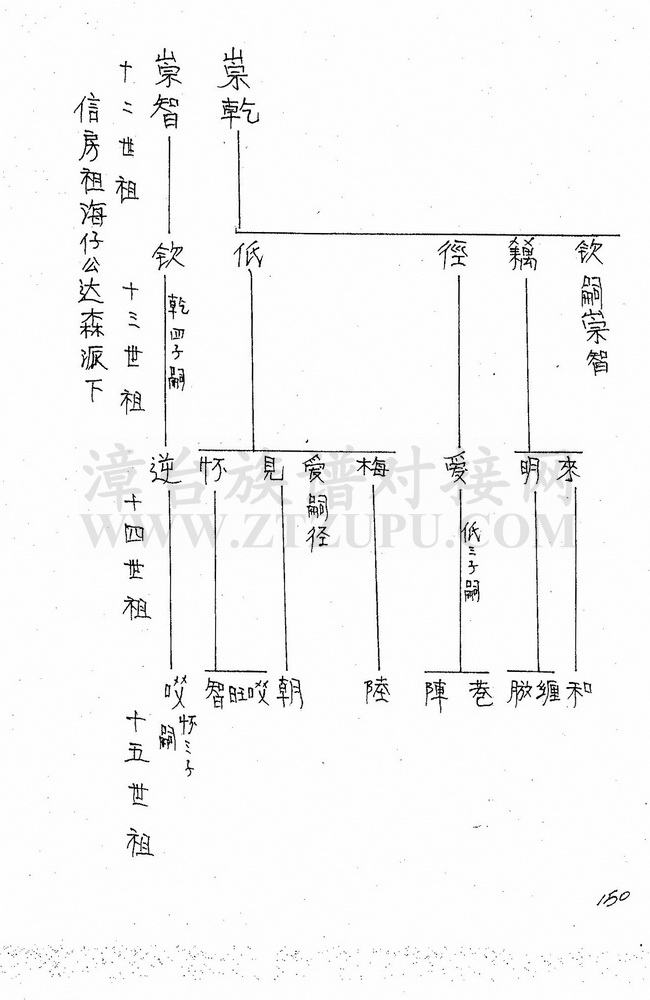 信房祖海仔公达森派下
十二世祖
崇智
崇乾
十三世祖
钦
乾四子嗣
低
徑
藕
钦
嗣崇智
十四世祖
逆
怀
見
爱
嗣径
梅
爱
低三子嗣
明
來
十五世祖
哎
怀三子嗣
智
旺
哎
朝
陸
陣
巷
纏
和
150
漳台族谱对接网
WWW.ZTZUPU.COM